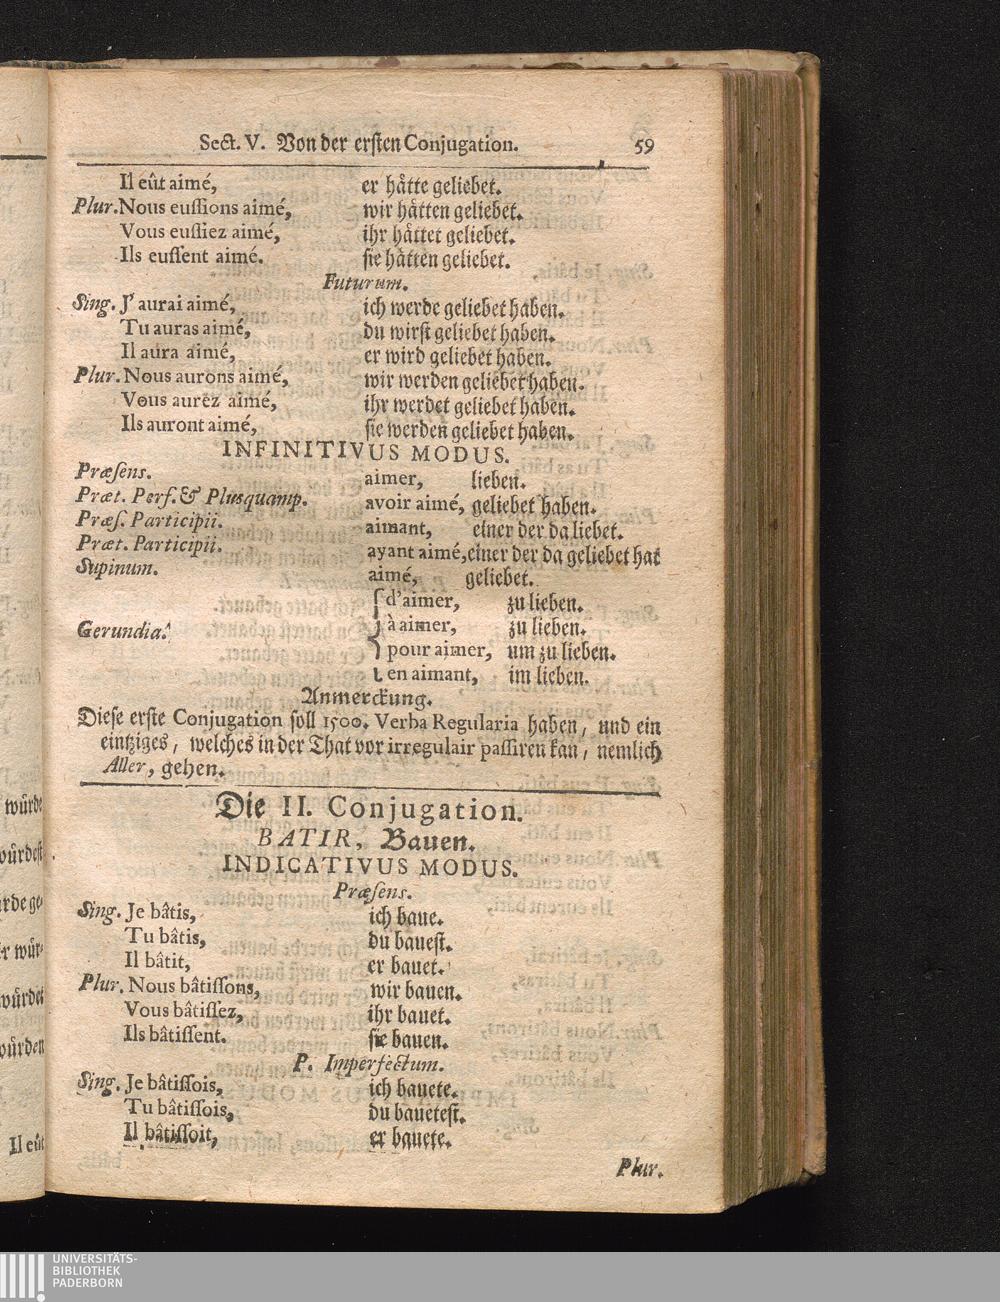 Sect. V. Von der ersten Conjugation. 59
Il eût aimé, er hätte geliebet.
Plur. Nous eussions aimé, wir hätten geliebet.
Vous eussiez aimé, ihr hättet geliebet.
Ils eussent aimé. sie hätten geliebet.
Futurum.
Sing. J'aurai aimé, ich werde geliebet haben.
Tu auras aimé, du wirst geliebet haben.
Il aura aimé, er wird geliebet haben.
Plur. Nous aurons aimé, wir werden geliebet haben.
Vous aurez aimé, ihr werdet geliebet haben.
Ils auront aimé, sie werden geliebet haben.
INFINITIVUS MODUS.
Præsens. aimer, lieben.
Præt. Perf. & Plusquamp. avoir aimé, geliebet haben.
Præs. Participii. aimant, einer der da liebet.
Præt. Participii. ayant aimé, einer der da geliebet hat
Supinum. aimé, geliebet.
d'aimer, zu lieben.
Gerundia. à aimer, zu lieben.
pour aimer, um zu lieben.
en aimant, im lieben.
Anmerckung.
Diese erste Conjugation soll 1500. Verba Regularia haben, und ein
eintziges, welches in der That vor irregulair passiren kan, nemlich
Aller, gehen.
Die II. Conjugation.
BATIR, Bauen.
INDICATIVUS MODUS.
Præsens.
Sing. Je bâtis, ich baue.
Tu bâtis, du bauest.
Il bâtit, er bauet.
Plur. Nous bâtissons, wir bauen.
Vous bâtissez, ihr bauet.
Ils bâtissent. sie bauen.
P. Imperfectum.
Sing. Je bâtissois, ich bauete.
Tu bâtissois, du bauetest.
Il bâtissoit, er bauete.
Plur.
würde
würdest
Il eût
UNIVERSITÄTS-
BIBLIOTHEK
PADERBORN